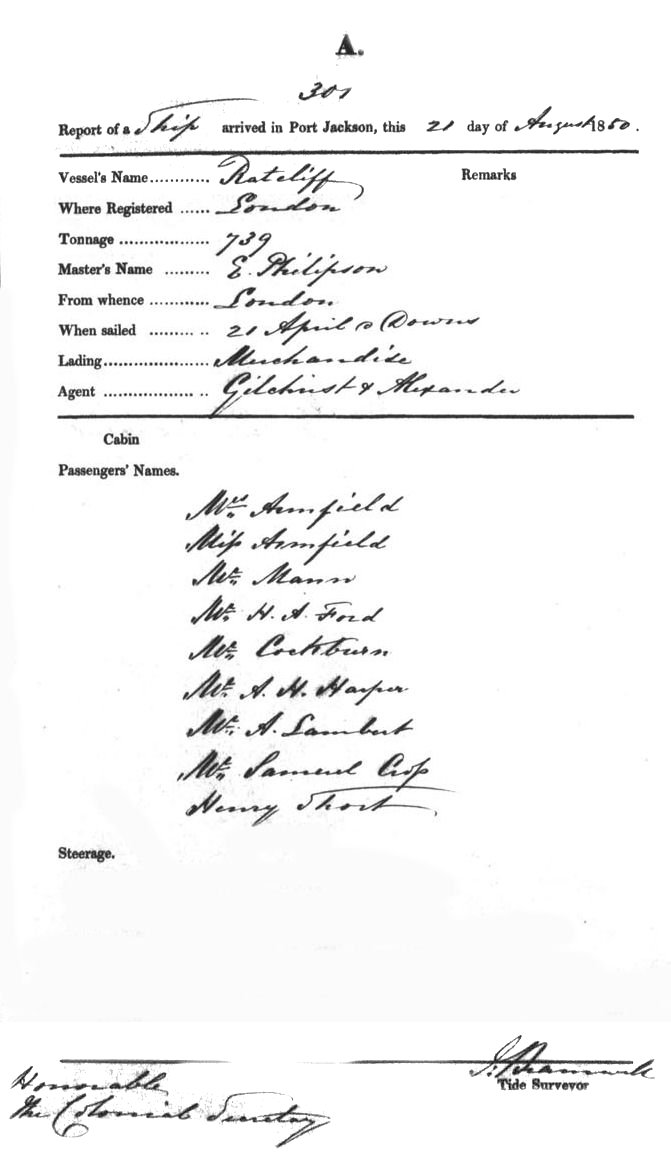 A.
301
Report of a Ship arrived in Port Jackson, this 21 day of August 1850.
Vessel's Name............ Ratcliff Remarks
Where Registered ...... London
Tonnage .................. 739
Master's Name ......... E. Philipson
From whence ............ London
When sailed ......... .. 21 April @ Downs
Lading..................... Merchandise
Agent .................. .. Gilchrist & Alexander
Cabin
Passengers' Names.
Mrs Armfield
Miss Armfield
Mr Mann
Mr H. A. Ford
Mr Cockburn
Mr A. H. Harper
Mr A. Lambert
Mr Samuel
Henry Short
Steerage.
Tide Surveyor
Honorable
The Colonial Secretary